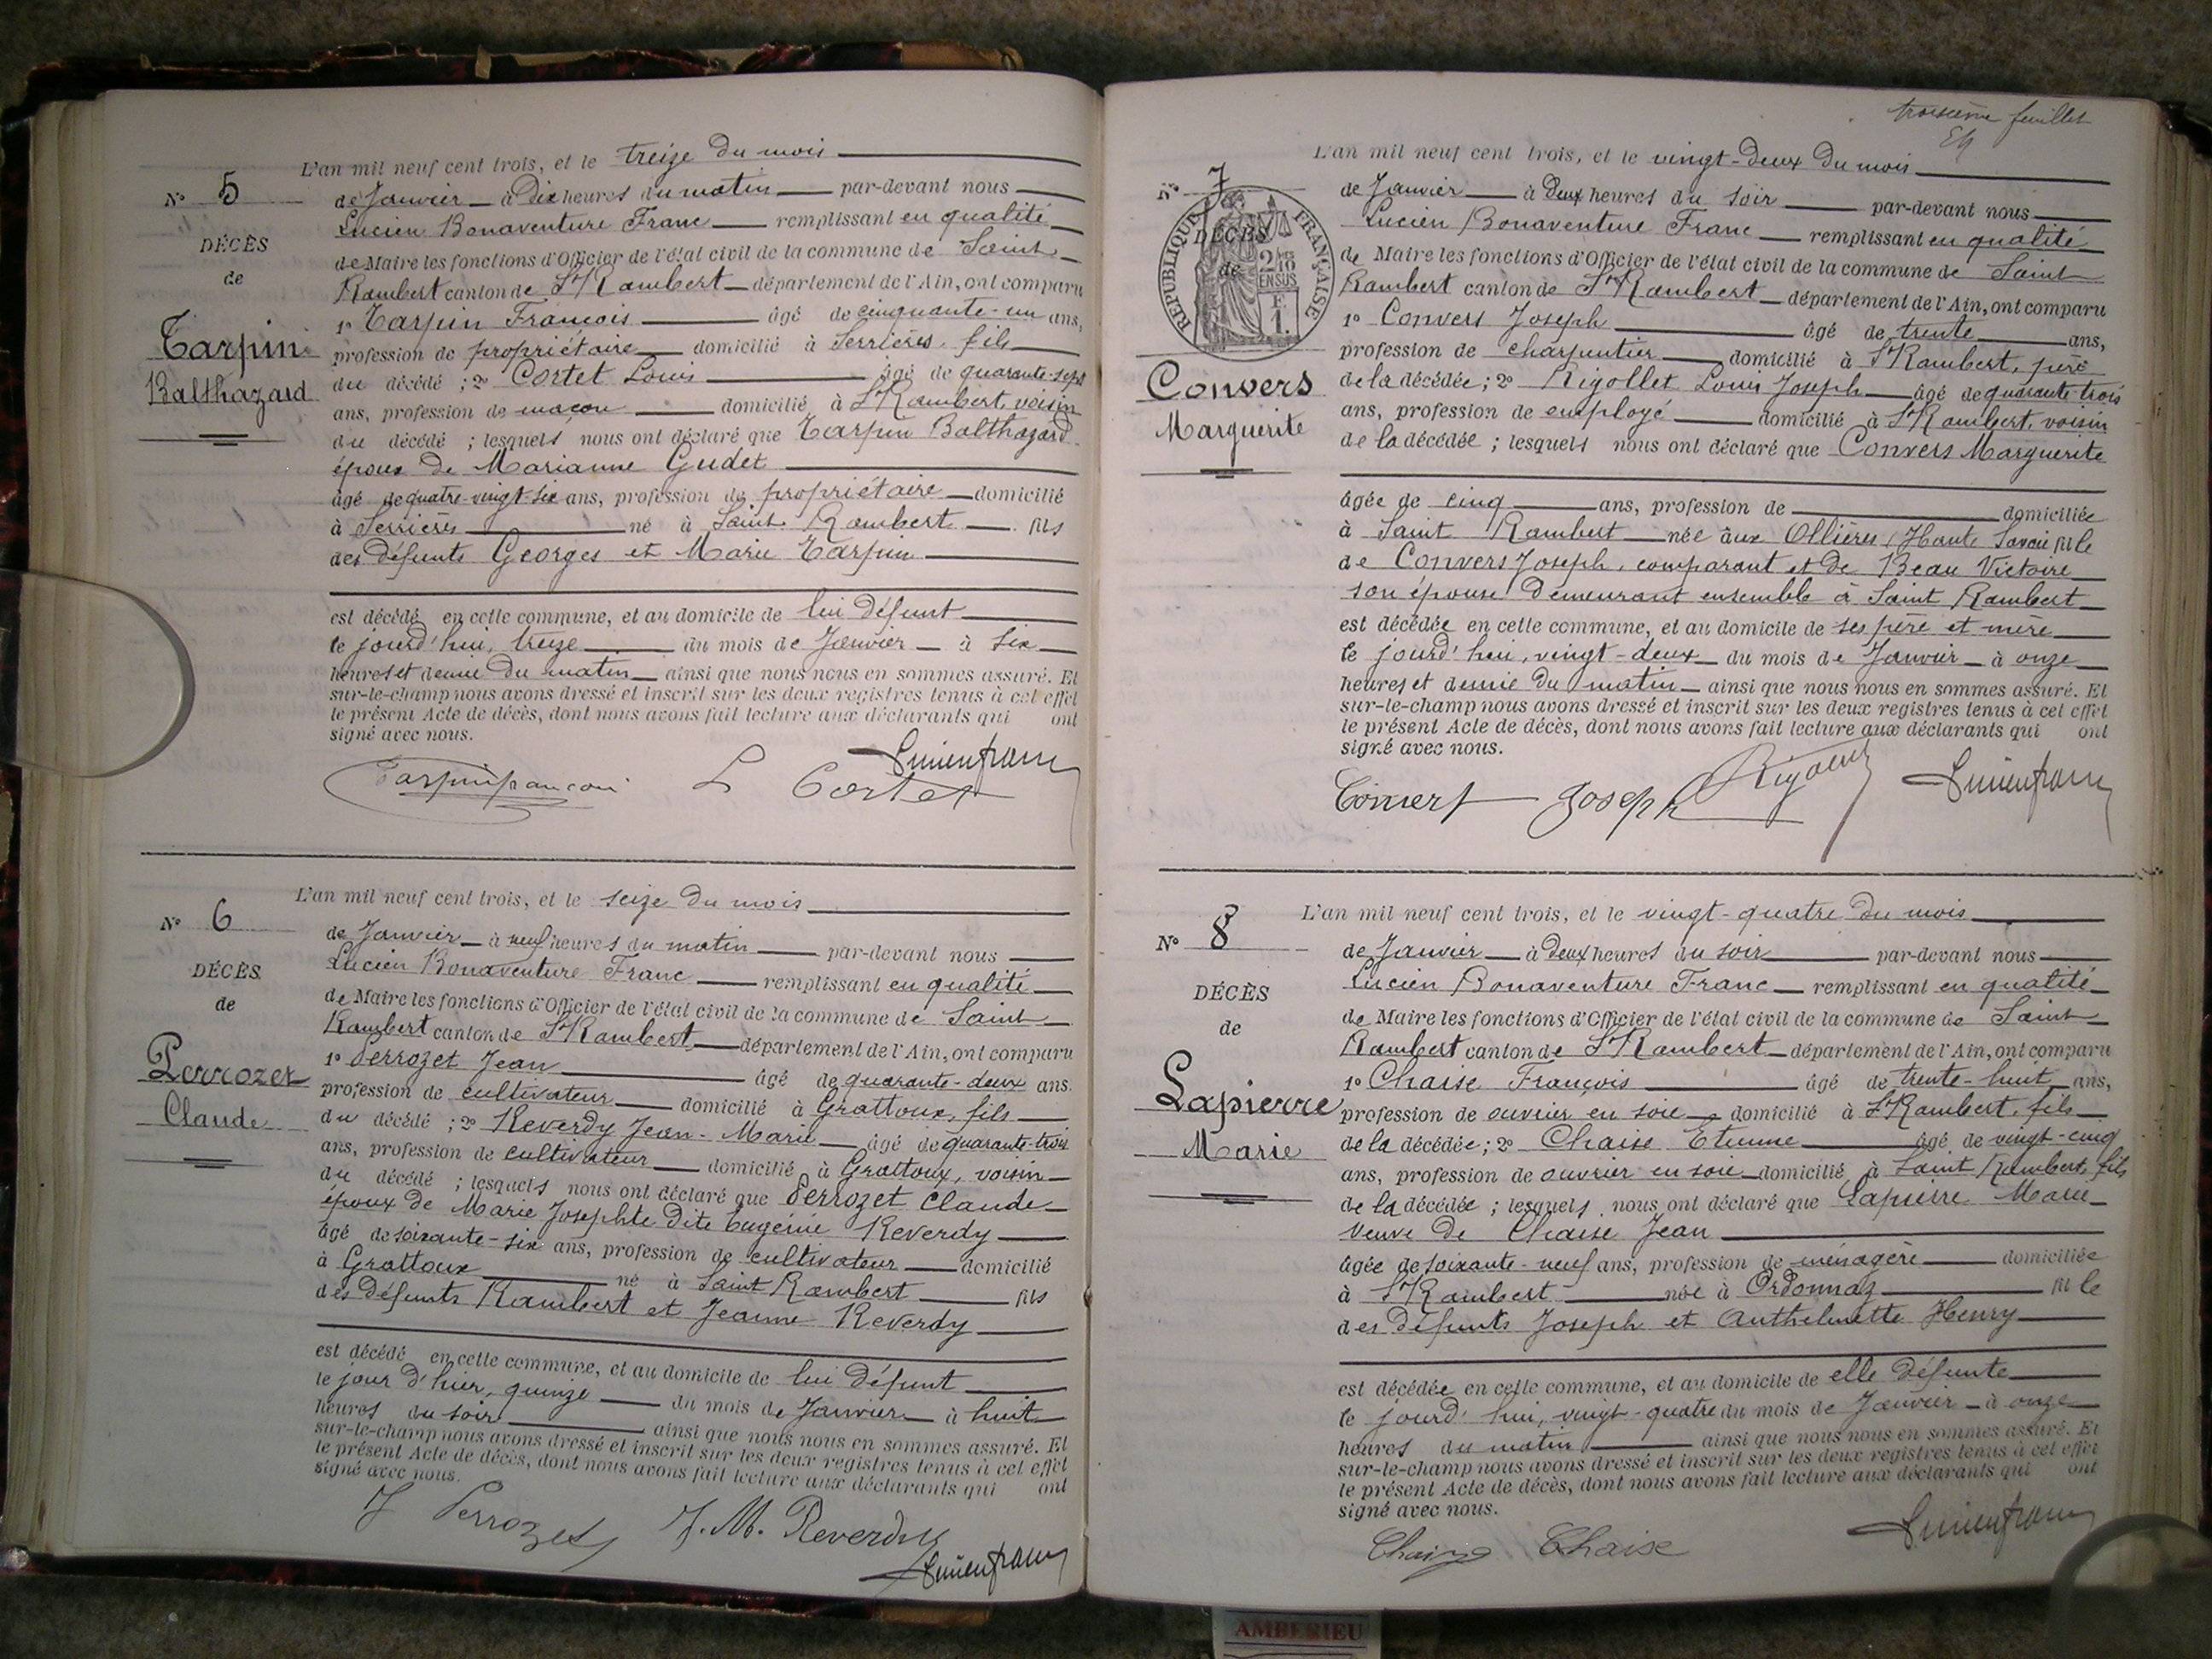 L'an mil neuf cent trois, et le treize du mois
N° 5
de Janvier à Dix heures du matin par-devant nous
Lucien Bonaventure Franc remplissant en qualité
DÉCÈS
de Maire les fonctions d'Officier de l'état civil de la commune de Saint
de
Rambert canton de St Rambert département de l'Ain, ont comparu
1° Tarpin François âgé de cinquante-un ans,
Tarpin
profession de propriétaire domicilié à Serrières, fils
du décédé ; 2° Cortet Louis âgé de quarante-sept
Balthazard
ans, profession de maçon domicilié à St Rambert, voisin
du décédé ; lesquels nous ont déclaré que Tarpin Balthazard
époux de Marianne Gudet
âgé de quatre-vingt-six ans, profession de propriétaire domicilié
à Serrières né à Saint Rambert fils
des défunts Georges et Marie Tarpin
est décédé en cette commune, et au domicile de lui défunt
le jourd'hui, treize du mois de Janvier à six
heures et demie du matin ainsi que nous nous en sommes assuré. Et
sur-le-champ nous avons dressé et inscrit sur les deux registres tenus à cet effet
le présent Acte de décès, dont nous avons fait lecture aux déclarants qui ont
signé avec nous.
Tarpin françoi L Cortet Lucien franc
L'an mil neuf cent trois, et le seize du mois
N° 6
de Janvier à neuf heures du matin par-devant nous
Lucien Bonaventure Franc remplissant en qualité
DÉCÈS
de Maire les fonctions d'Officier de l'état civil de la commune de Saint
de
Rambert canton de St Rambert département de l'Ain, ont comparu
1° Perrozet Jean âgé de quarante-deux ans.
Perrozet
profession de cultivateur domicilié à Grattoux, fils
Claude
du décédé ; 2° Reverdy Jean-Marie âgé de quarante-trois
ans, profession de cultivateur domicilié à Grattoux, voisin
du décédé ; lesquels nous ont déclaré que Perrozet Claude
époux de Marie Josephte dite Eugénie Reverdy
âgé de soixante-six ans, profession de cultivateur domicilié
à Grattoux né à Saint Rambert fils
des défunts Rambert et Jeanne Reverdy
est décédé en cette commune, et au domicile de lui défunt
le jour d'hier, quinze du mois de Janvier à huit
heures du soir ainsi que nous nous en sommes assuré. Et
sur-le-champ nous avons dressé et inscrit sur les deux registres tenus à cet effet
le présent Acte de décès, dont nous avons fait lecture aux déclarants qui ont
signé avec nous.
J Perrozet J. M. Reverdy
Lucien franc
troisième feuillet
L'an mil neuf cent trois, et le vingt-deux du mois
N° 7
de Janvier à deux heures du soir par-devant nous
Lucien Bonaventure Franc remplissant en qualité
RÉPUBLIQUE FRANÇAISE
DÉCÈS
de Maire les fonctions d'Officier de l'état civil de la commune de Saint
de
2/10 EN SUS
F. 1.
Rambert canton de St Rambert département de l'Ain, ont comparu
1° Convers Joseph âgé de trente ans,
profession de charpentier domicilié à St Rambert, père
Convers
de la décédée ; 2° Rigollet Louis Joseph âgé de quarante-trois
ans, profession de employé domicilié à St Rambert, voisin
Marguerite
de la décédée ; lesquels nous ont déclaré que Convers Marguerite
âgée de cinq ans, profession de domiciliée
à Saint Rambert née aux Ollières (Haute Savoie fille
de Convers Joseph, comparant et de Beau Victoire
son épouse demeurant ensemble à Saint Rambert
est décédée en cette commune, et au domicile de ses père et mère
le jourd'hui, vingt-deux du mois de Janvier à onze
heures et demie du matin ainsi que nous nous en sommes assuré. Et
sur-le-champ nous avons dressé et inscrit sur les deux registres tenus à cet effet
le présent Acte de décès, dont nous avons fait lecture aux déclarants qui ont
signé avec nous.
Convers Joseph Lucien franc
L'an mil neuf cent trois, et le vingt-quatre du mois
N° 8
de Janvier à deux heures du soir par-devant nous
Lucien Bonaventure Franc remplissant en qualité
DÉCÈS
de Maire les fonctions d'Officier de l'état civil de la commune de Saint
de
Rambert canton de St Rambert département de l'Ain, ont comparu
1° Chaise François âgé de trente-huit ans,
Lapierre
profession de ouvrier en soie domicilié à St Rambert, fils
Marie
de la décédée ; 2° Chaise Etienne âgé de vingt-cinq
ans, profession de ouvrier en soie domicilié à Saint Rambert, fils
de la décédée ; lesquels nous ont déclaré que Lapierre Marie
veuve de Chaise Jean
âgée de soixante-neuf ans, profession de ménagère domiciliée
à St Rambert née à Ordonnaz fille
des défunts Joseph et Anthelmette Henry
est décédée en cette commune, et au domicile de elle défunte
le jourd'hui, vingt-quatre du mois de Janvier à onze
heures du matin ainsi que nous nous en sommes assuré. Et
sur-le-champ nous avons dressé et inscrit sur les deux registres tenus à cet effet
le présent Acte de décès, dont nous avons fait lecture aux déclarants qui ont
signé avec nous.
Chaise Lucien franc
AMBERIEU